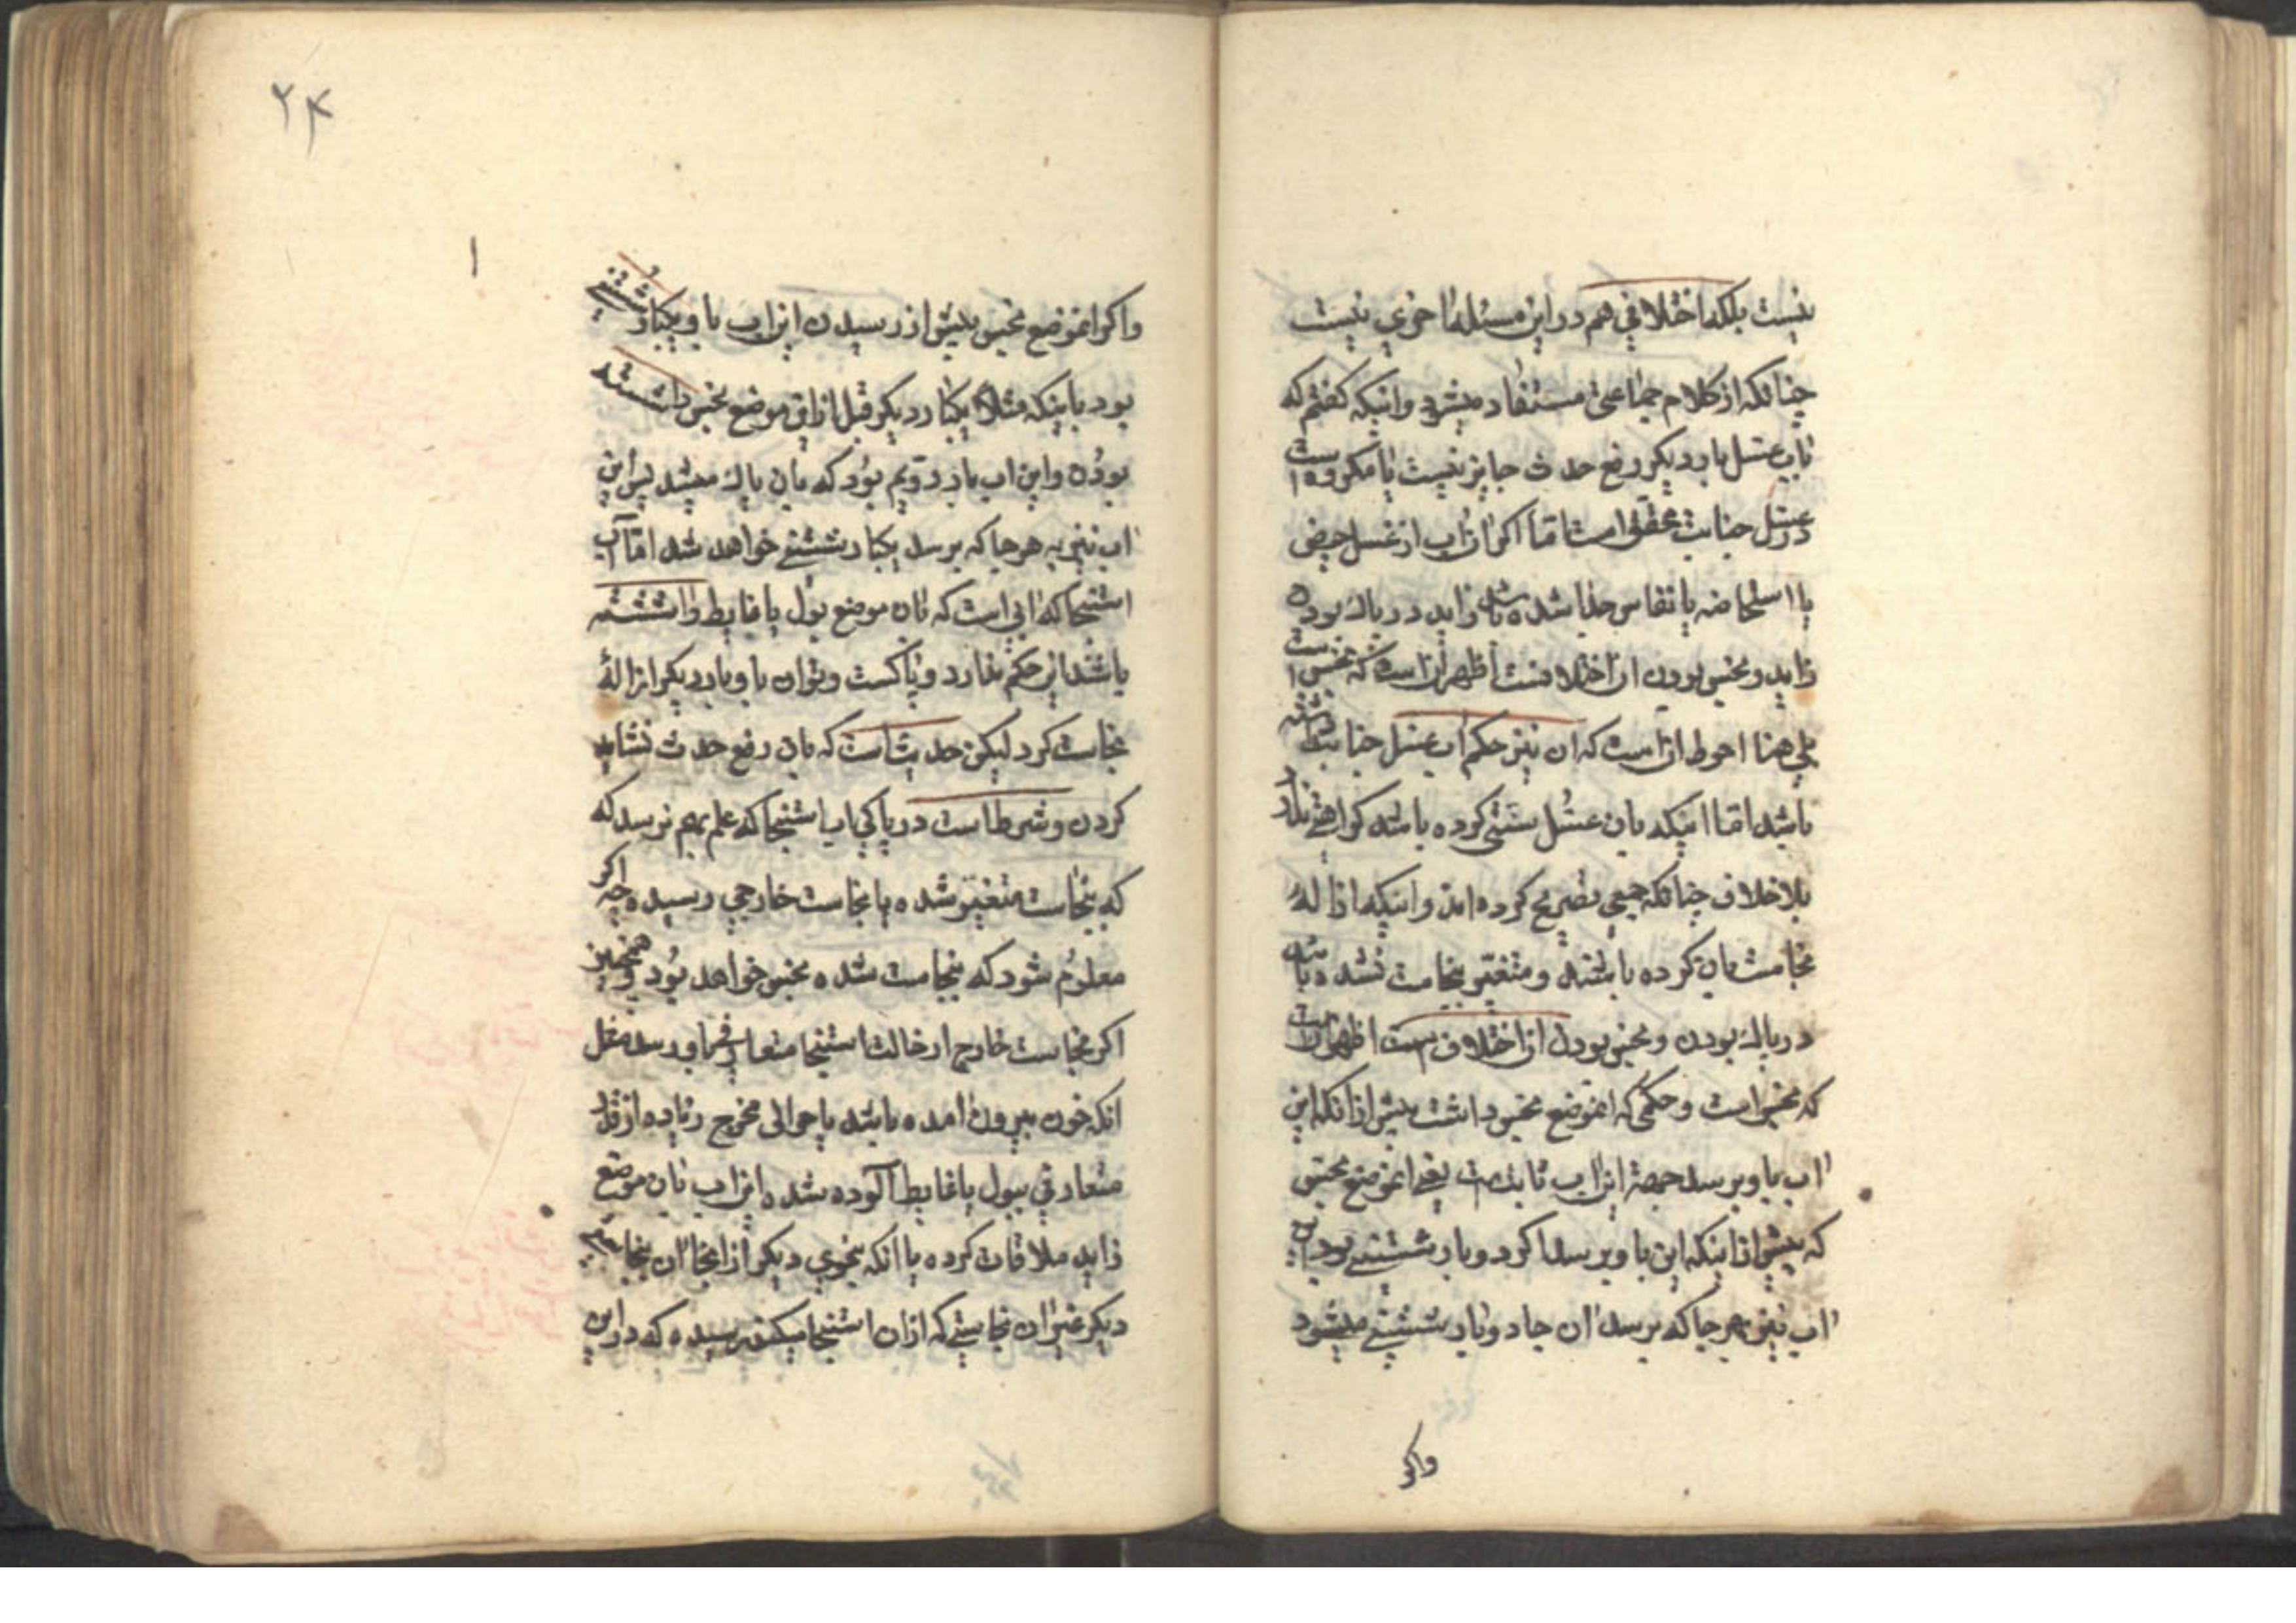 نیست بلکه اختلافی هم در این مسئله ما خوی نیست
چنانکه از کلام جماعتی مستفاد میشود و اینکه گفتم که
باب غسل بار دیگر رفع حدث جایز نیست یا مکروه است
در غسل جنابت محقق است اما اگر ان اب از غسل حیض
یا استحاضه یا نفاس جدا شده باشد زاید در پاک بوده
زاید و نجس بودن ان اختلافست اظهر ان است که نجس است
بلی هذا احوط ان است که ان نیز حکم اب غسل جنابت داشته
باشد اما اینکه بان غسل سنتی کرده باشد کراهتی ندارد
بلا خلاف چنانکه جمعی تصریح کرده اند و اینکه ازالهٔ
نجاست بان کرده باشند و متغیر بنجاست نشده باشد
در پاک بودن و نجس بودن ان اختلافست اظهر ان است
که نجس است و حکمی که انموضع نجس داشت پیش از انکه این
اب باو برسد جهة این اب ثابت است یعنی انموضع نجس
که پیش از اینکه این باو برسد اکر دو بار شستنی بود این
اب نیز بهر جا که برسد ان جا دو بار شستنی میشود
واکر
۲۴
واکر انموضع نجس پیش از رسیدن این اب باو یکبار شستنی
بود باینکه مثلاً یکبار دیگر قبل از این موضع نجس را شسته
بوده و این اب بار دویم بود که بان پاک میشد پس این
اب نیز به هر جا که برسد یکبار شستنی خواهد شد اما آب
استنجا که ابی است که بان موضع بول یا غایط را شسته
باشند این حکم ندارد و پاکست و بتوان باو بار دیگر ازالهٔ
نجاست کرد لیکن حدیث است که بان رفع حدث نشاید
کردن و شرط است در پاکی اب استنجا که علم بهم نرسد که
که بنجاست متغیر شده یا نجاست خارجی رسیده چه اکر
معلوم شود که بنجاست شده نجس خواهد بود و همچنین
اکر نجاست خارج از حالت استنجا متعارف باو رسد مثل
انکه خون بیرون امده باشد یا حوالی مخرج زیاده از قدر
متعارفی ببول یا غایط آلوده شده این اب بان موضع
زاید ملاقات کرده یا انکه بنحوی دیگر از انجا ان بنجاستی
دیگر غیر ان نجاستی که ازان استنجا میکند رسیده که در این